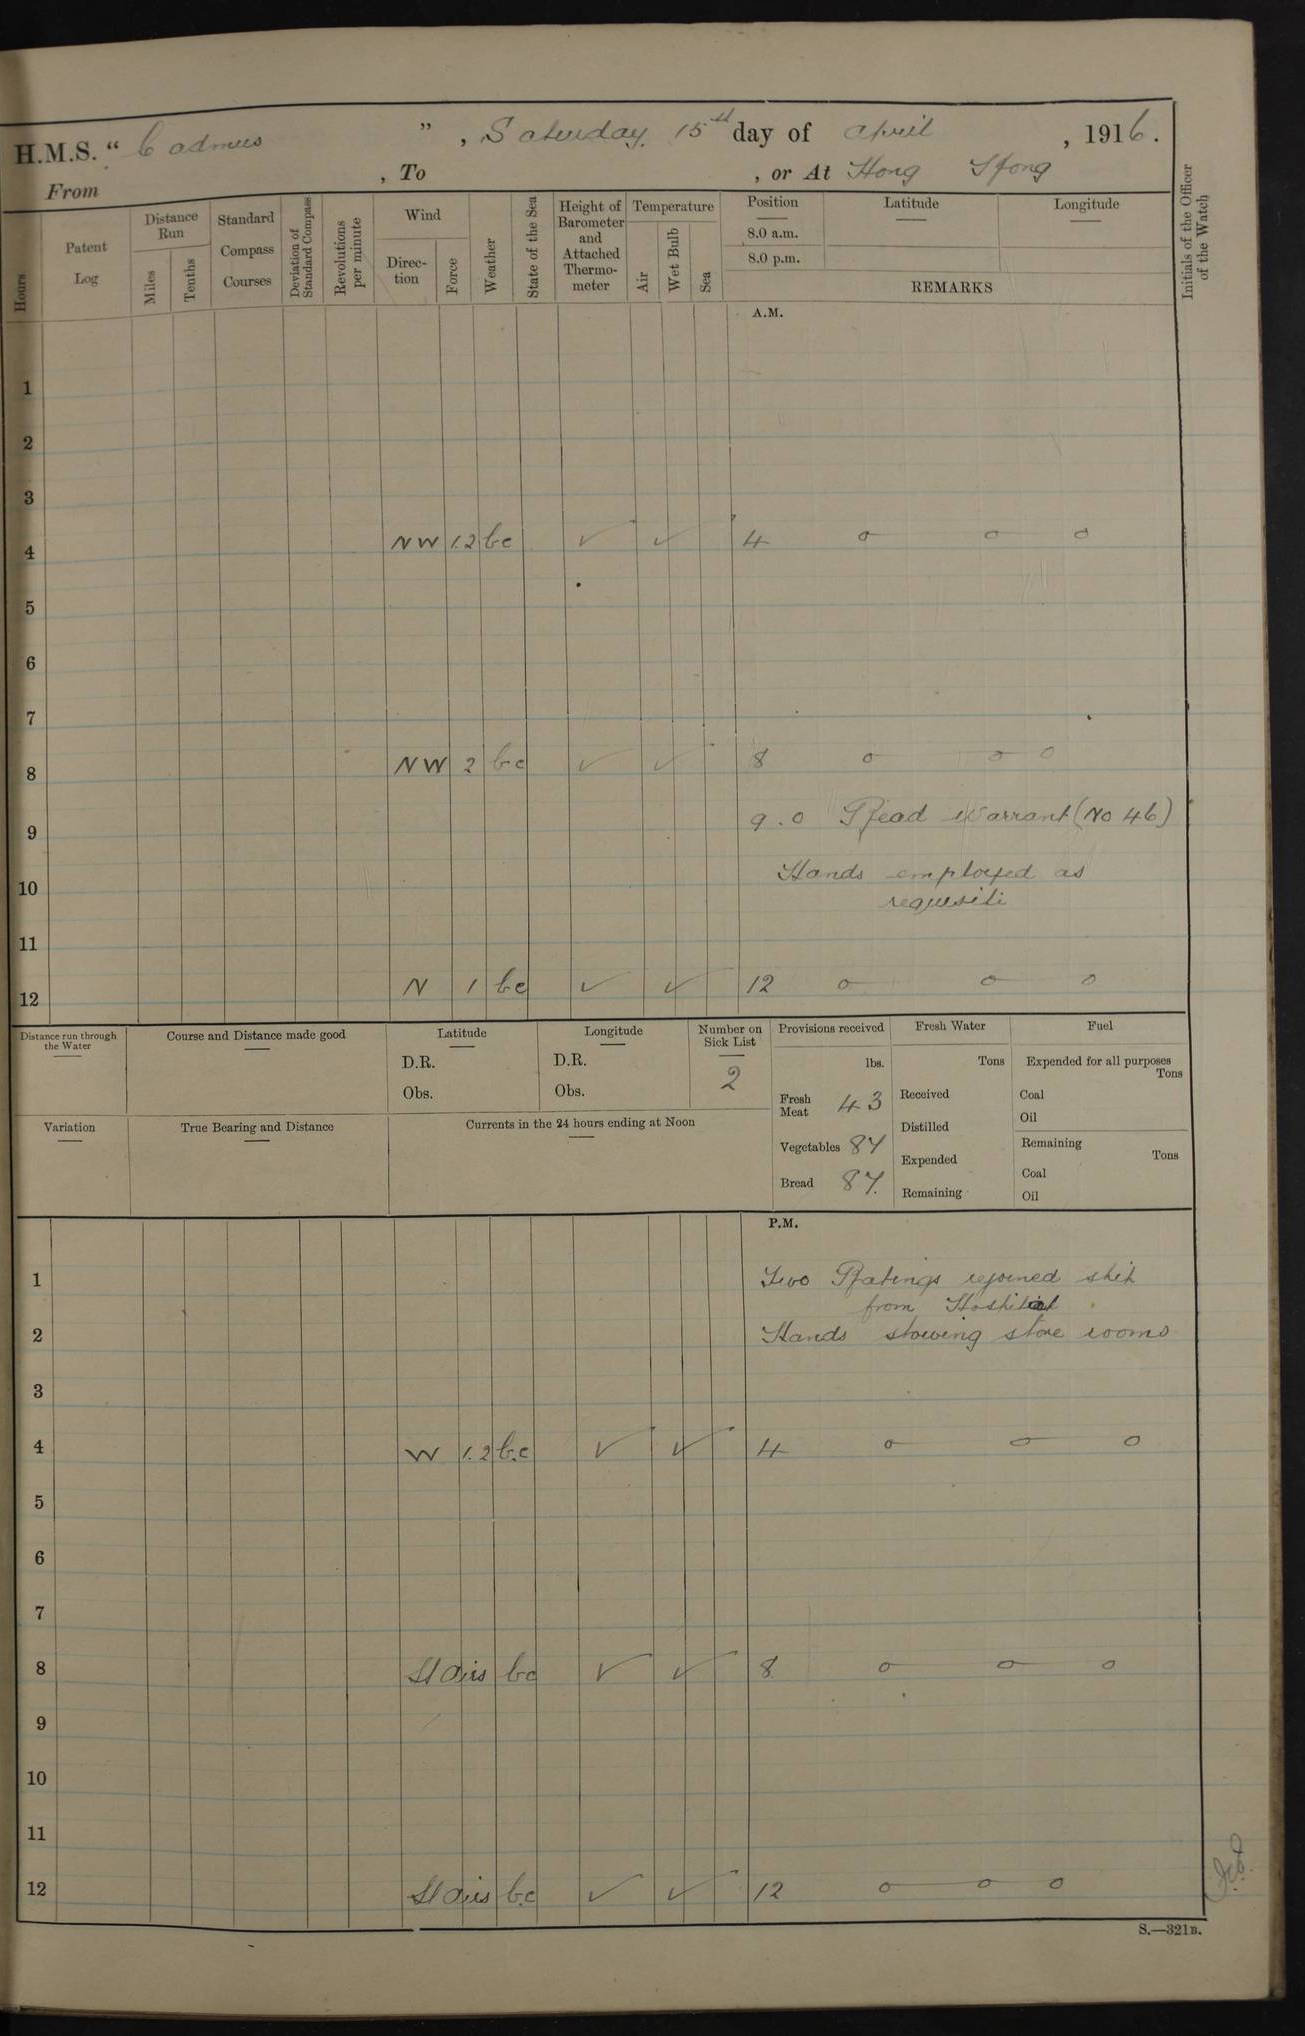 H.M.S. “ Cadmus ” , Saturday 15th day of April , 1916.
From , To , or At Hong Kong
Hours
Patent Log
Distance Run
Miles
Tenths
Standard Compass Courses
Deviation of Standard Compass
Revolutions per minute
Wind
Direction
Force
Weather
State of the Sea
Height of Barometer and Attached Thermo-meter
Temperature
Air
Wet Bulb
Sea
Position
8.0 a.m.
8.0 p.m.
Latitude
Longitude
REMARKS
Initials of the Officer of the Watch
A.M.
1
2
3
4 NW 1.2 bc ✓ ✓ 4 o o o
5
6
7
8 NW 2 bc ✓ ✓ 8 o o o
9 9.0 Read Warrant (No 46)
10 Hands employed as
requisite
11
12 N 1 bc ✓ ✓ 12 o o o
Distance run through the Water
Course and Distance made good
Latitude
D.R.
Obs.
Longitude
D.R.
Obs.
Number on Sick List
2
Provisions received
lbs.
Fresh Meat 43
Vegetables 87
Bread 87.
Fresh Water
Tons
Received
Distilled
Expended
Remaining
Fuel
Expended for all purposes
Tons
Coal
Oil
Remaining
Tons
Coal
Oil
Variation
True Bearing and Distance
Currents in the 24 hours ending at Noon
P.M.
1 Two Ratings rejoined ship
from Hospital
2 Hands stowing store rooms
3
4 W 1.2 bc ✓ ✓ 4 o o o
5
6
7
8 Lt airs bc ✓ ✓ 8 o o o
9
10
11
12 Lt airs bc ✓ ✓ 12 o o o
S.—321B.